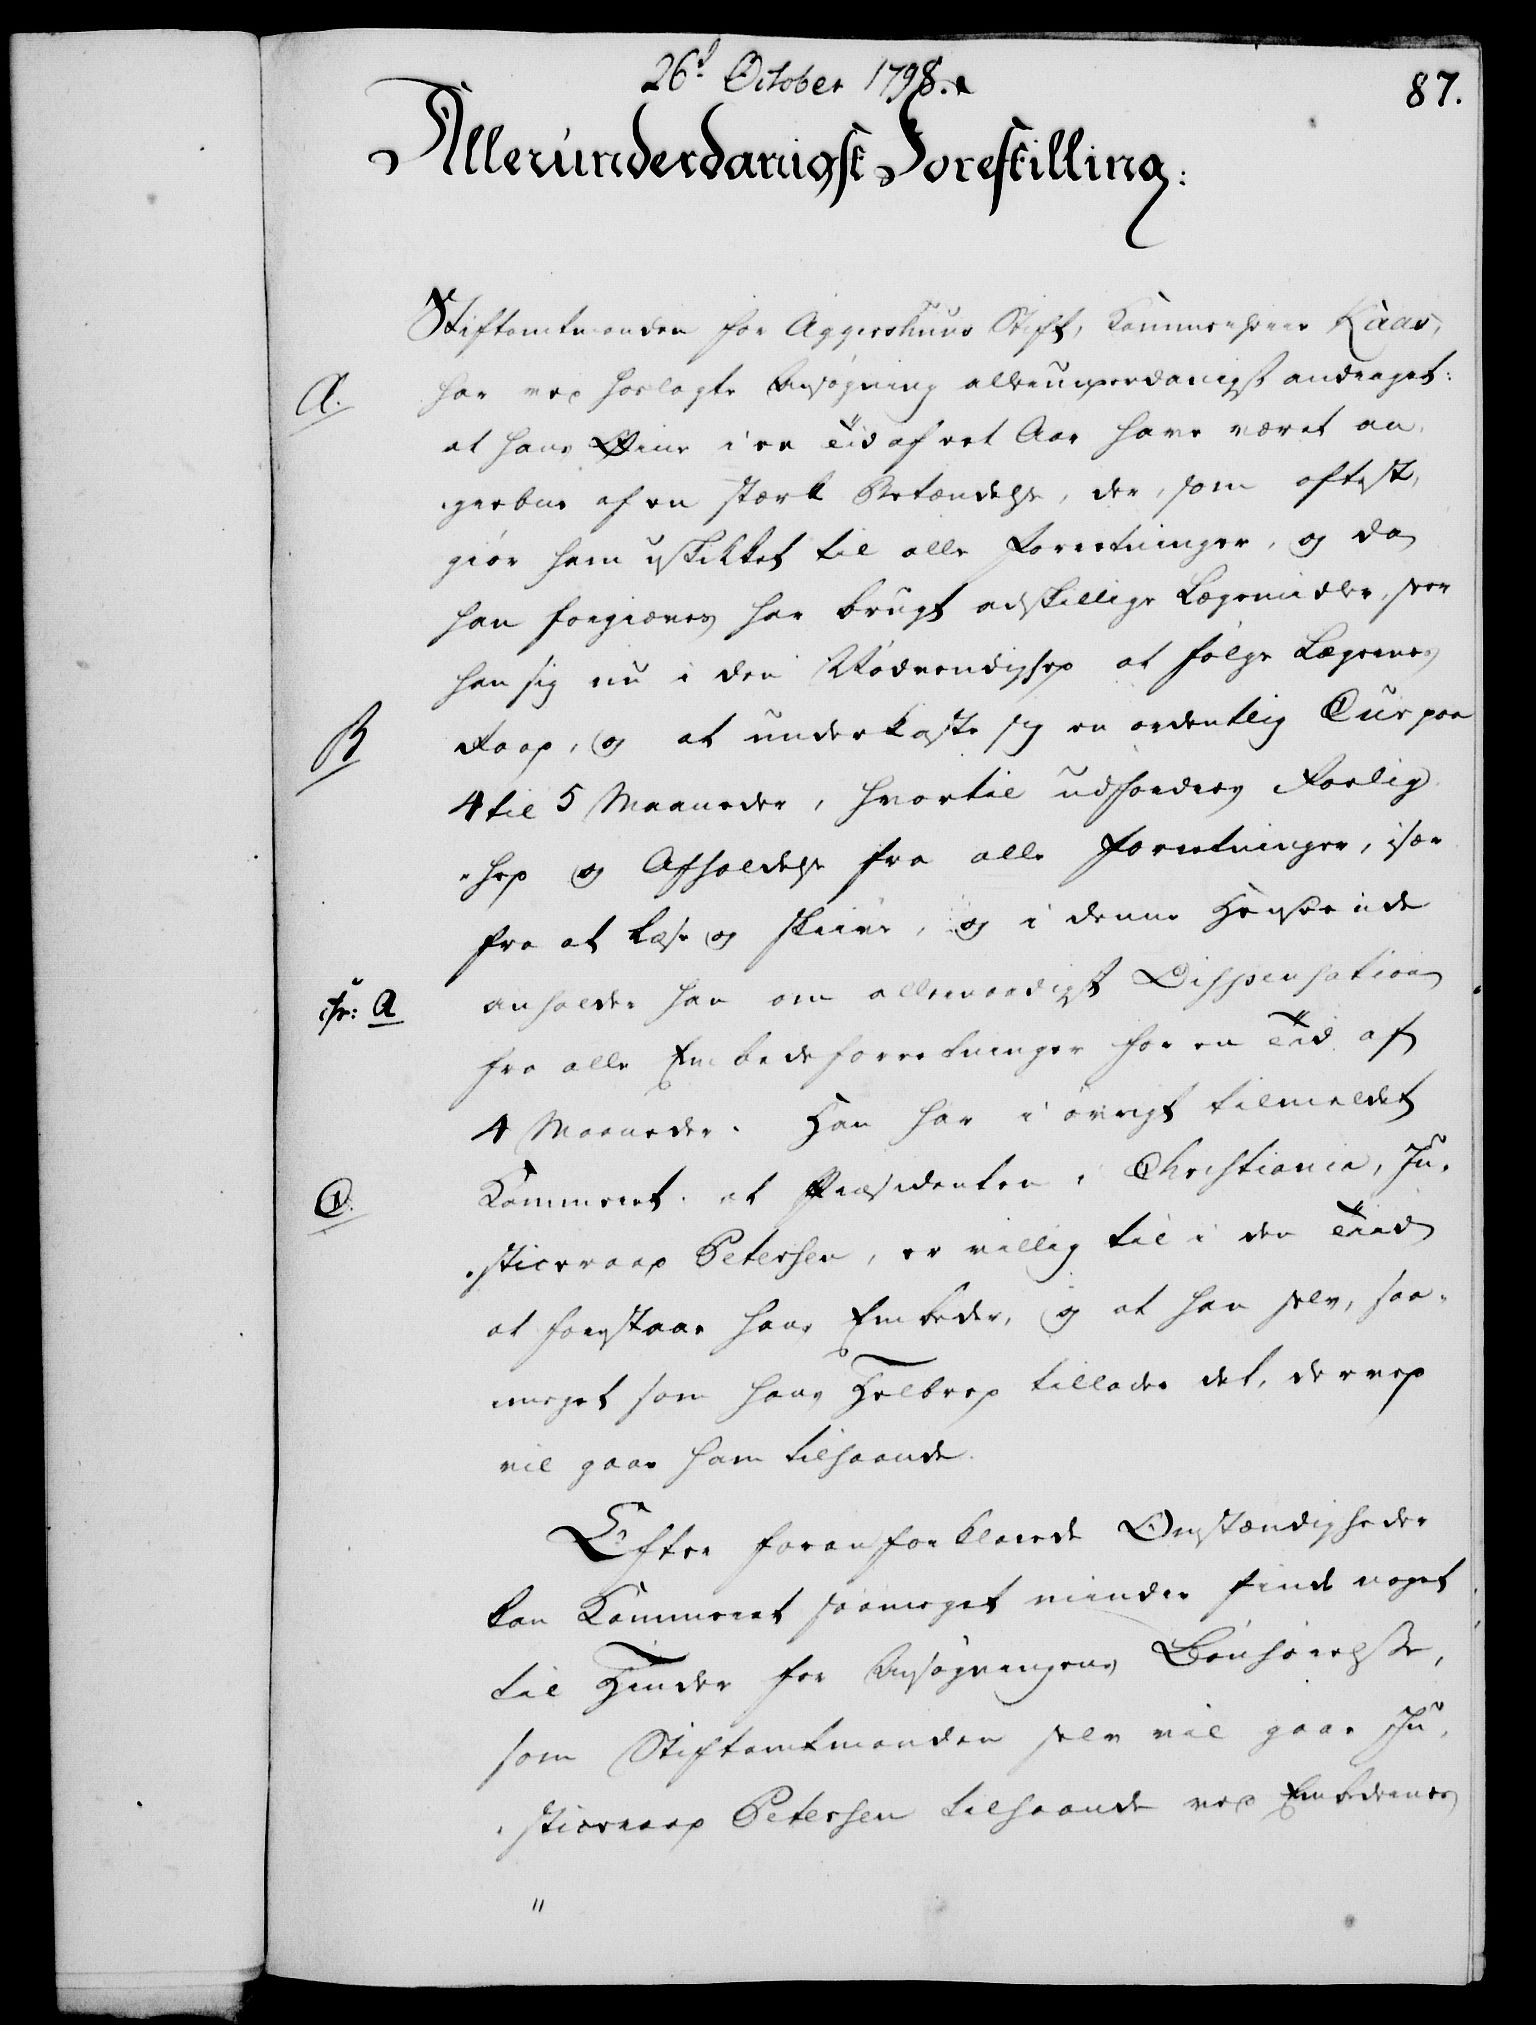 26d October 1798.
87.
Allerunderdanigst Forestilling:
Stiftamtmanden for Aggershuus Stift, Kammerherre Kaas,
A.
har ved hoslagte Ansøgning allerunderdanigst andraget:
at hans Øine i en Tiid af et Aar have været an-
grebne af en stærk Betændelse, der, som oftest,
giør ham uskikket til alle Forretninger, og da
han forgiæves har brugt adskillige Lægemidler, seer
han sig nu i den Nødvendighed at følge Lægernes
B
Raad, og at underkaste sig en ordentlig Cur paa
4 til 5 Maaneder, hvortil udfordres Roelig-
-hed og Afholdelse fra alle Forretninger, især
fra at læse og skrive, og i denne Henseende
cfr: A
anholder han om allernaadigst Dispensation
fra alle Embedsforretninger for en Tiid af
4 Maaneder. Han har i øvrigt tilmeldet
C.
Kammeret at Præsidenten i Christiania, Ju-
-sticeraad Petersen, er villig til i den Tiid
at forestaae hans Embeder, og at han selv, saa-
meget som hans Helbred tillader det, derved
vil gaae ham tilhaande.
Efter foranforklarede Omstændigheder
kan Kammeret saameget mindre finde noget
til Hinder for Ansøgningens Bønhørelse,
som Stiftamtmanden selv vil gaae Ju-
-sticeraad Petersen tilhaande ved Embedernes
"